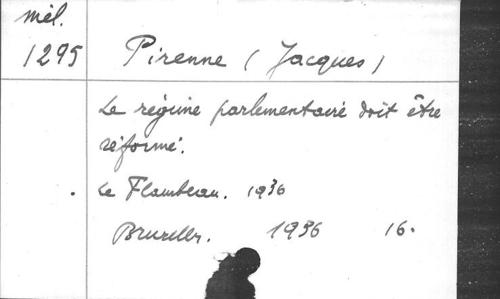 mél.
1295
Pirenne (Jacques)
Le régime parlementaire doit être
réformé.
Le Flambeau. 1936
Bruxelles. 1936 16.